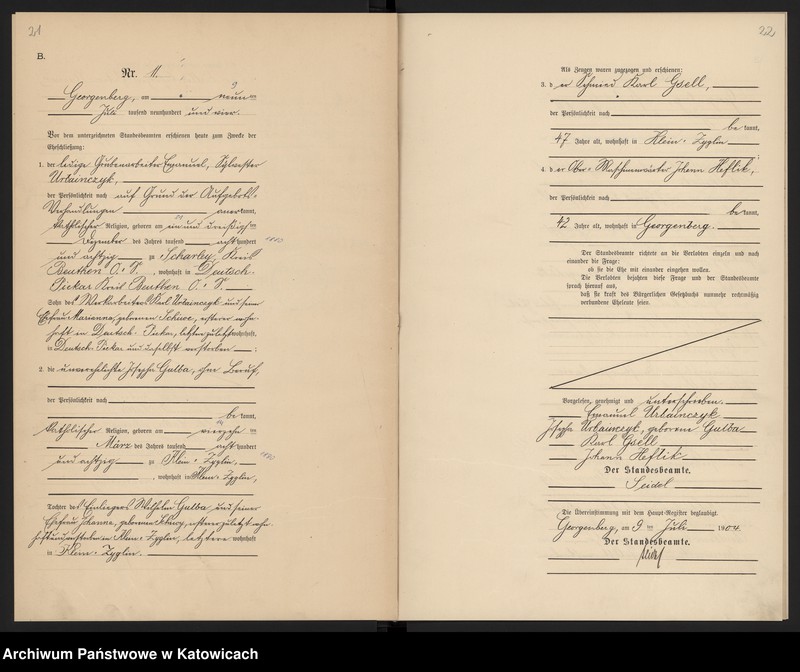 21
B.
Nr. 11.
9
Georgenberg, am neun ten
Juli tausend neunhundert und vier.
Vor dem unterzeichneten Standesbeamten erschienen heute zum Zwecke der
Eheschließung:
1. der ledige Grubenarbeiter Emanuel, Sylvester
Urbainczyk,
der Persönlichkeit nach auf Grund der Aufgebots-
Verhandlungen anerkannt,
katholischer Religion, geboren am ein und dreißigsten
Dezember des Jahres tausend acht hundert
und achtzig zu Scharley, Kreis
Beuthen O.-S., wohnhaft in Deutsch-
Piekar Kreis Beuthen O.-S.
Sohn des Werkarbeiters Karl Urbainczyk und seiner
Ehefrau Marianna, geborenen ersterer wohn-
haft in Deutsch-Piekar, letztere zuletzt wohnhaft
in Deutsch-Piekar und daselbst verstorben ;
2. die unverehelichte Josepha Gulba, ohne Beruf,
der Persönlichkeit nach
be kannt,
katholischer Religion, geboren am vierzehn ten
März des Jahres tausend acht hundert
und achtzig zu Klein-Zyglin,
, wohnhaft in Klein-Zyglin,
Tochter des Einliegers Wilhelm Gulba und seiner
Ehefrau Johanna, geborenen ersterer zuletzt wohn-
haft und verstorben in Klein-Zyglin, letztere wohnhaft
in Klein-Zyglin.
22
Als Zeugen waren zugezogen und erschienen:
3. d er Schmied Karl Gsell,
der Persönlichkeit nach
be kannt,
47 Jahre alt, wohnhaft in Klein-Zyglin
;
4. d er Ober-Maschinenwärter Johann Heflik,
der Persönlichkeit nach
be kannt,
42 Jahre alt, wohnhaft in Georgenberg.
Der Standesbeamte richtete an die Verlobten einzeln und nach
einander die Frage:
ob sie die Ehe mit einander eingehen wollen.
Die Verlobten bejahten diese Frage und der Standesbeamte
sprach hierauf aus,
daß sie kraft des Bürgerlichen Gesetzbuchs nunmehr rechtmäßig
verbundene Eheleute seien.
Vorgelesen, genehmigt und unterschrieben.
Emanuel Urbainczyk
Josepha Urbainczyk, geborene Gulba
Karl Gsell
Johann Heflik
Der Standesbeamte.
Seidel
Die Übereinstimmung mit dem Haupt-Register beglaubigt.
Georgenberg, am 9 ten Juli 1904.
Der Standesbeamte.
Seidel
Archiwum Państwowe w Katowicach